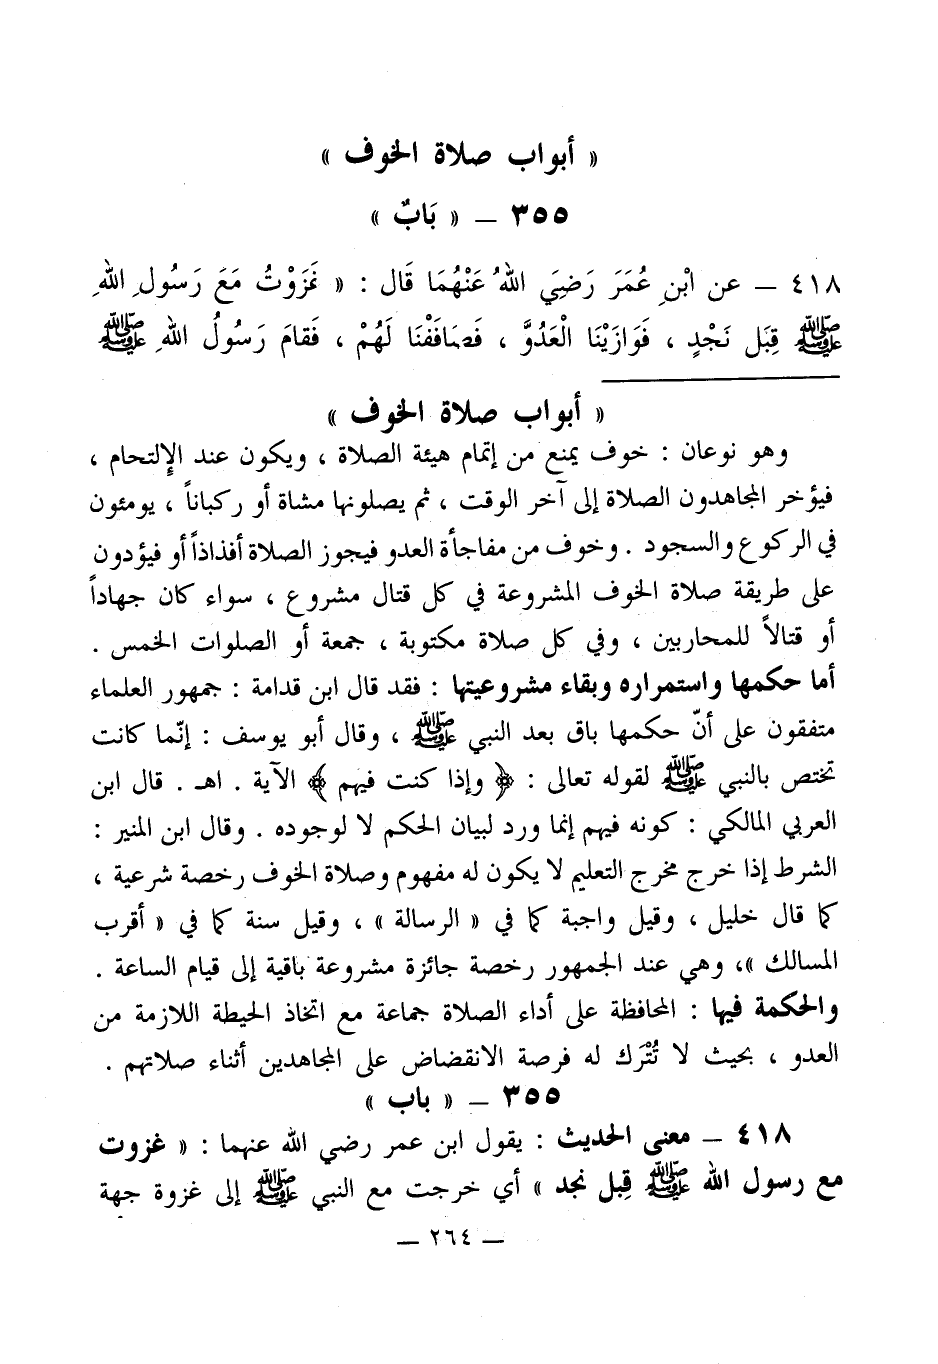 « أبواب صلاة الخوف »
٣٥٥ ــ « بَابٌ »
٤١٨ ــ عن ابْنِ عُمَرَ رَضِيَ اللهُ عَنْهُمَا قَال : « غَزَوْتُ مَعَ رَسُولِ اللهِ
ﷺ قِبَل نَجْدٍ ، فَوَازَيْنَا الْعَدُوَّ ، فَصَافَفْنَا لَهُمْ ، فَقامَ رَسُولُ اللهِ ﷺ
« أبواب صلاة الخوف »
وهو نوعان : خوف يمنع من إتمام هيئة الصلاة ، ويكون عند الإلتحام ،
فيؤخر المجاهدون الصلاة إلى آخر الوقت ، ثم يصلونها مشاة أو ركباناً ، يومئون
في الركوع والسجود . وخوف من مفاجأة العدو فيجوز الصلاة أفذاذاً أو فيؤدون
على طريقة صلاة الخوف المشروعة في كل قتال مشروع ، سواء كان جهاداً
أو قتالاً للمحاربين ، وفي كل صلاة مكتوبة ، جمعة أو الصلوات الخمس .
أما حكمها واستمراره وبقاء مشروعيتها : فقد قال ابن قدامة : جمهور العلماء
متفقون على أنّ حكمها باق بعد النبي ﷺ ، وقال أبو يوسف : إنّما كانت
تختص بالنبي ﷺ لقوله تعالى : ﴿ وإذا كنت فيهم ﴾ الآية . اهـ . قال ابن
العربي المالكي : كونه فيهم إنما ورد لبيان الحكم لا لوجوده . وقال ابن المنير :
الشرط إذا خرج مخرج التعليم لا يكون له مفهوم وصلاة الخوف رخصة شرعية ،
كما قال خليل ، وقيل واجبة كما في « الرسالة » ، وقيل سنة كما في « أقرب
المسالك »، وهي عند الجمهور رخصة جائزة مشروعة باقية إلى قيام الساعة .
والحكمة فيها : المحافظة على أداء الصلاة جماعة مع اتخاذ الحيطة اللازمة من
العدو ، بحيث لا تُتْرَك له فرصة الانقضاض على المجاهدين أثناء صلاتهم .
٣٥٥ ــ « باب »
٤١٨ ــ معنى الحديث : يقول ابن عمر رضي الله عنهما : « غزوت
مع رسول الله ﷺ قِبل نجد » أي خرجت مع النبي ﷺ إلى غزوة جهة
ــ ٢٦٤ ــ